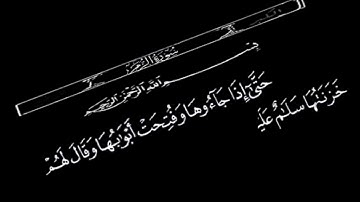 سُورَةُ الزُّمَرِ
بِسْمِ اللَّهِ الرَّحْمَٰنِ الرَّحِيمِ
حَتَّىٰٓ إِذَا جَآءُوهَا وَفُتِحَتْ أَبْوَٰبُهَا وَقَالَ لَهُمْ
خَزَنَتُهَا سَلَٰمٌ عَلَيـ